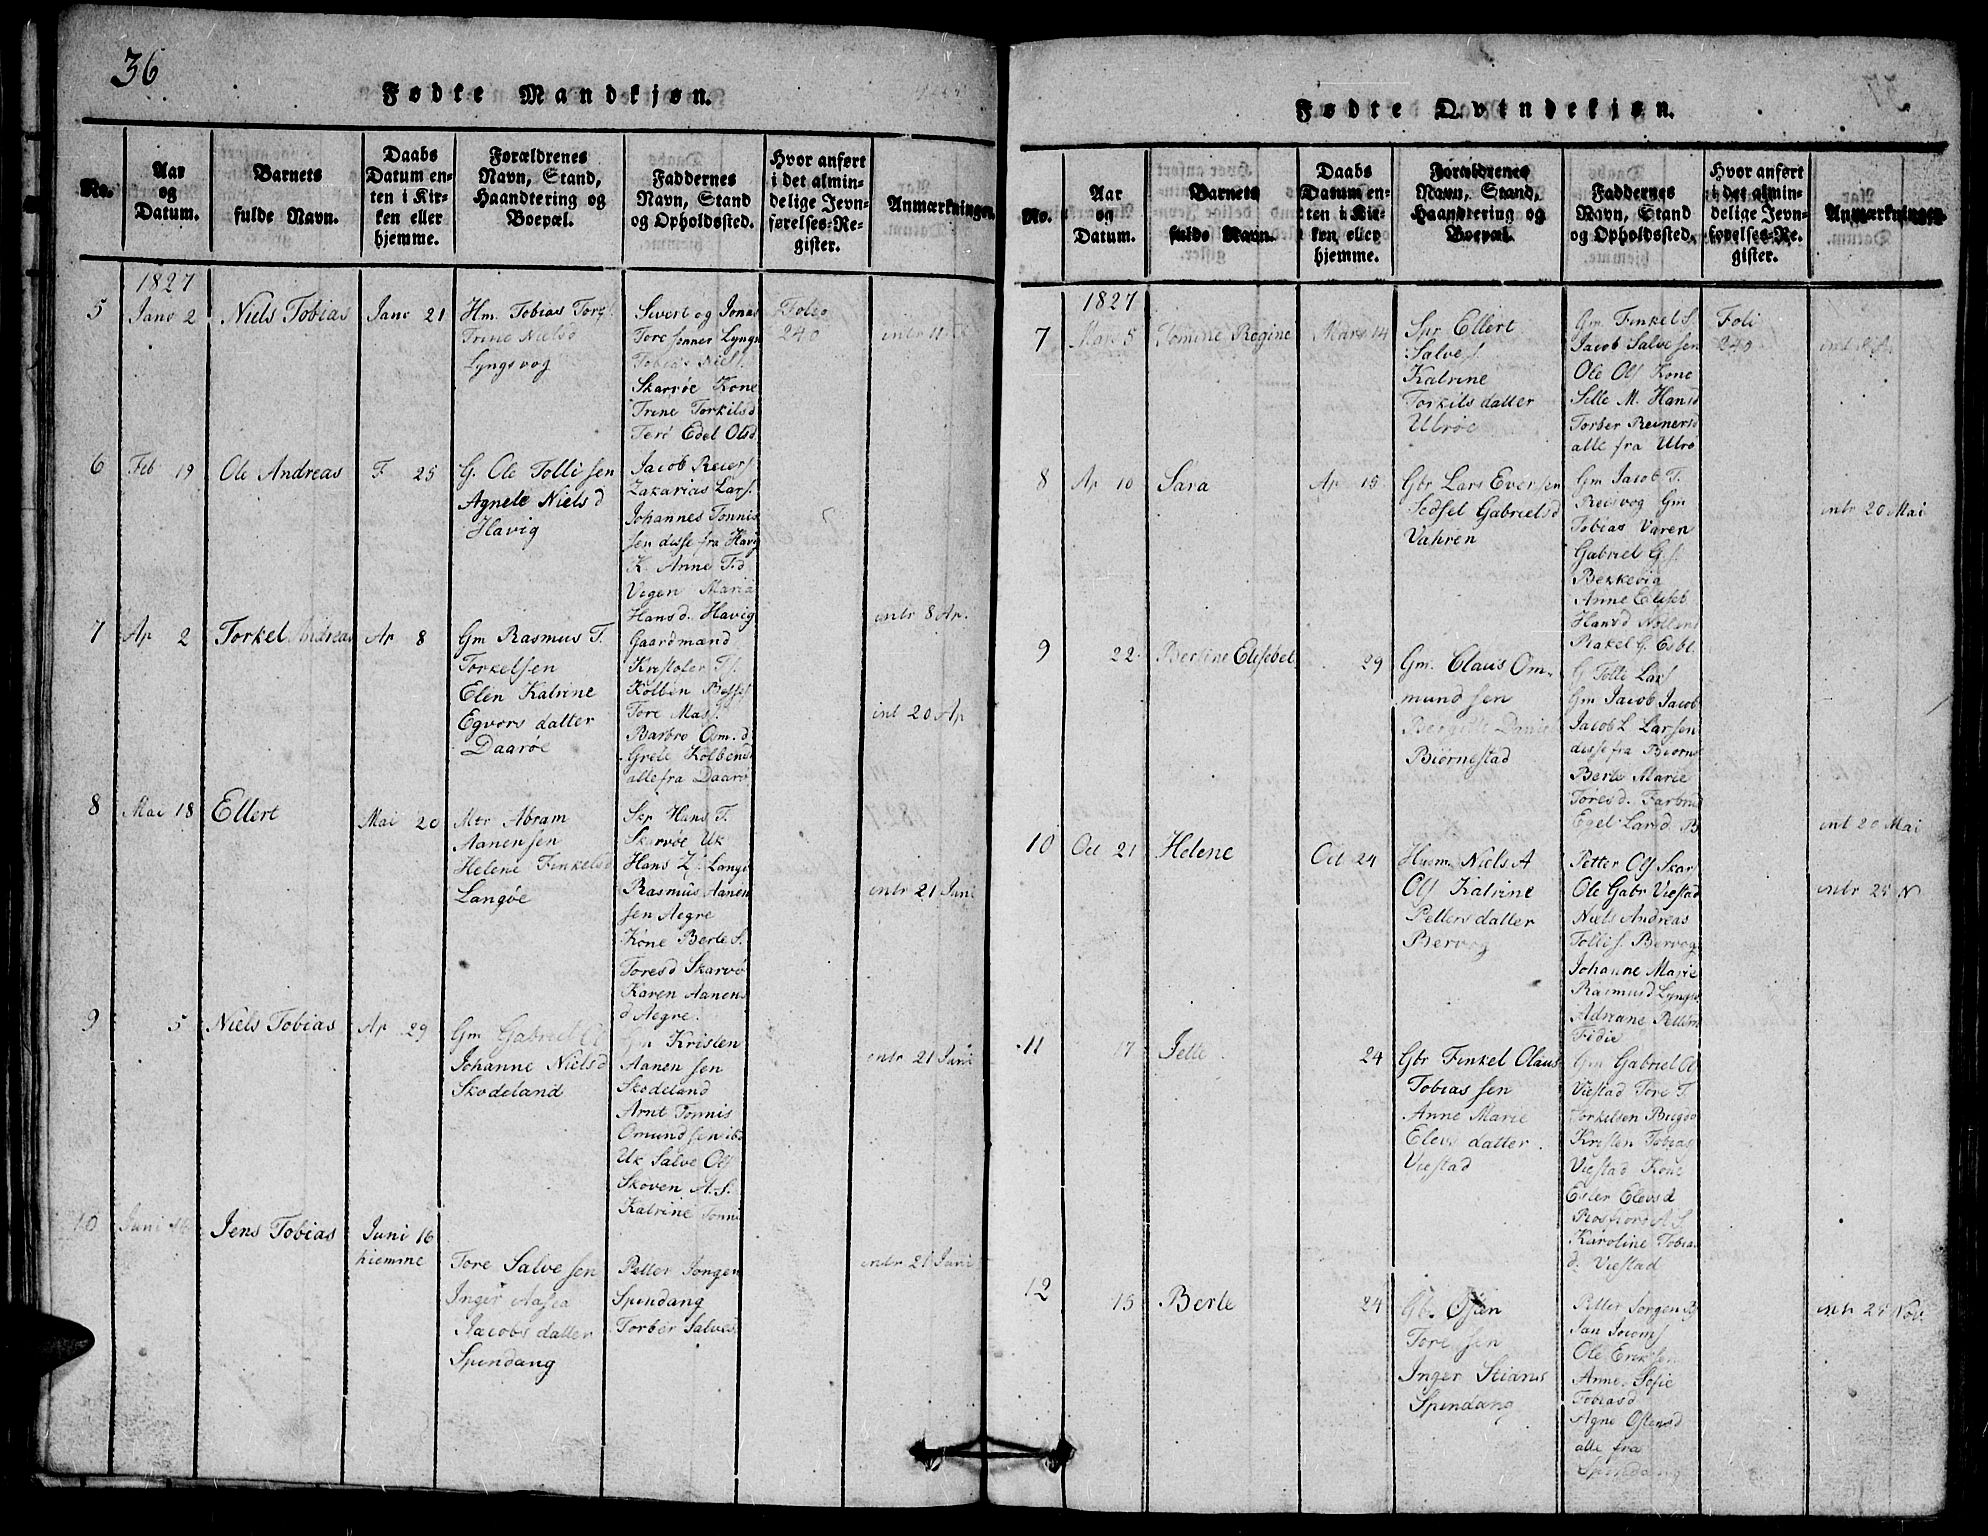 36
Fødte Mandkjøn.
No.
Aar
og
Datum.
Barnets
fulde Navn.
Daabs
Datum en-
ten i Kir-
ken eller
hjemme.
Forældrenes
Navn, Stand,
Haandtering og
Boepæl.
Faddernes
Navn, Stand
og Opholdssted.
Hvor anført
i det almin-
delige Jevn-
førelses-Re-
gister.
Anmærkninger.
1827
5 Janv 2 Niels Tobias Janv 21
Hm. Tobias Torg
Trine Nielsd
Lyngsvog
Sivert og Jonas
Tore sønner Lyngv
Tobias Niels
Skarvøe Kone
Trine Torkilsd
Terö Edel Olsd
Folio
240
intr 11
6 Feb 19 Ole Andreas F 25
G. Ole Tollisen
Agnete Nielsd
Havig
Jacob Reiers
Zakarias Lars.
Johannes Tonnis
sen disse fra Havig
K. Anne T.d
Vegen Maria
Hansd. Havig
intr 8 Ap.
7 Ap 2 Torkel Andreas Ap 8
Gm Rasmus T.
Torkelsen
Elen Katrine
Egvors datter
Daarøe
Gaardmænd
Kristofer Ts.
Kolben
Tore Mas.
Barbro Om.d
Grete Kolbensd
alle fra Daarö
int 20 Ap
8 Mai 18 Ellert Mai 20
Mtr Abram
Aanensen
Helene Finkelsd
Langøe
Skp Hans T.
Skarvøe Uk
Hans Z. Langö
Rasmus Aanen
sen Aegre
Kone Berte S.
Toresd Skarvö
Karen Aanens
d Aegre.
intr 21 Juni
9 5 Niels Tobias Ap 29
Gm Gabriel O
Johanne Nielsd
Skodeland
Gm Kristen
Aanensen
Skodeland
Arnt Tonnis
Omundsen ibd
Uk Salve Ols
Skoven A.S.
Katrine Tonni
intr 21 Juni
10 Juni 16 Jens Tobias Juni 16
hiemme
Tore Salvesen
Inger Aasea
Jacobs datter
Spindang
Petter Jorgen
Spindang
Torber Salves
intr 21 Juni
Fødte Qvindekjøn.
No.
Aar
og
Datum.
Barnets
fulde Navn.
Daabs
Datum en-
ten i Kir-
ken eller
hjemme.
Forældrenes
Navn, Stand,
Haandtering og
Boepæl.
Faddernes
Navn, Stand
og Opholdssted.
Hvor anført
i det almin-
delige Jevn-
førelses-Re-
gister.
Anmærkninger.
1827
7 Mars 5 Tomine Regine Mars 14
Skp Ellert
Salves.
Katrine
Torkils datter
Ulvöe
Gm Finkel S.
Jacob Salvesen
Ole Ols Kone
Sille M. Hansd
Torber Reinersd
alle fra Ulvö
Foli
240
8 Ap 10 Sara Ap 15
Gbr Lars Eversen
Sedsel Gabrielsd
Vahren
Gm Jacob T.
Reisvog Gm
Tobias Varen
Gabriel Gs.
Bekkevig
Anne Eliseb
Hansd
Rakel G. Esbl
intr 20 Mai
9 22 Bersine Elisebet 29
Gm. Claus Om-
mundsen
Bergitte Daniel
Biörnestad
G Tolle Lars
Gm Jacob Jacob
Jacob L Larsen
disse fra Biörns
Berte Marie
Toresd. Farbrod
Egel Larsd B
int 20 Mai
10 Oct 21 Helene Oct 24
Huusm. Niels A
Ols Katrine
Petters datter
Bervog
Petter Ols Skar
Ole Gabr Viestad
Niels Andreas
Tollis. Bervog
Johanne Marie
Rasmusd Lyngs
Adriane Petters
Fidie
intr 25 N
11 17 Jette 24
Gbr Finkel Olaus
Tobiassen
Anne Marie
Elevs datter
Viestad
Gm Gabriel O
Viestad Tore T.
Torkelsen Bugdö
Kristen Tobias
Viestad Kone
Ester Elevsd
Rosfiord A.S.
Karoline Tobias
d. Viestad
12 15 Berte 24
Gbr Osten
Toresen
Inger Stians
Spindang
Petter Jorgen B
Jan Jocoms
Ole Eriksen
Anne Sofie
Tobiasd
Agne Ostensd
alle fra
Spindang
intr 25 Nov